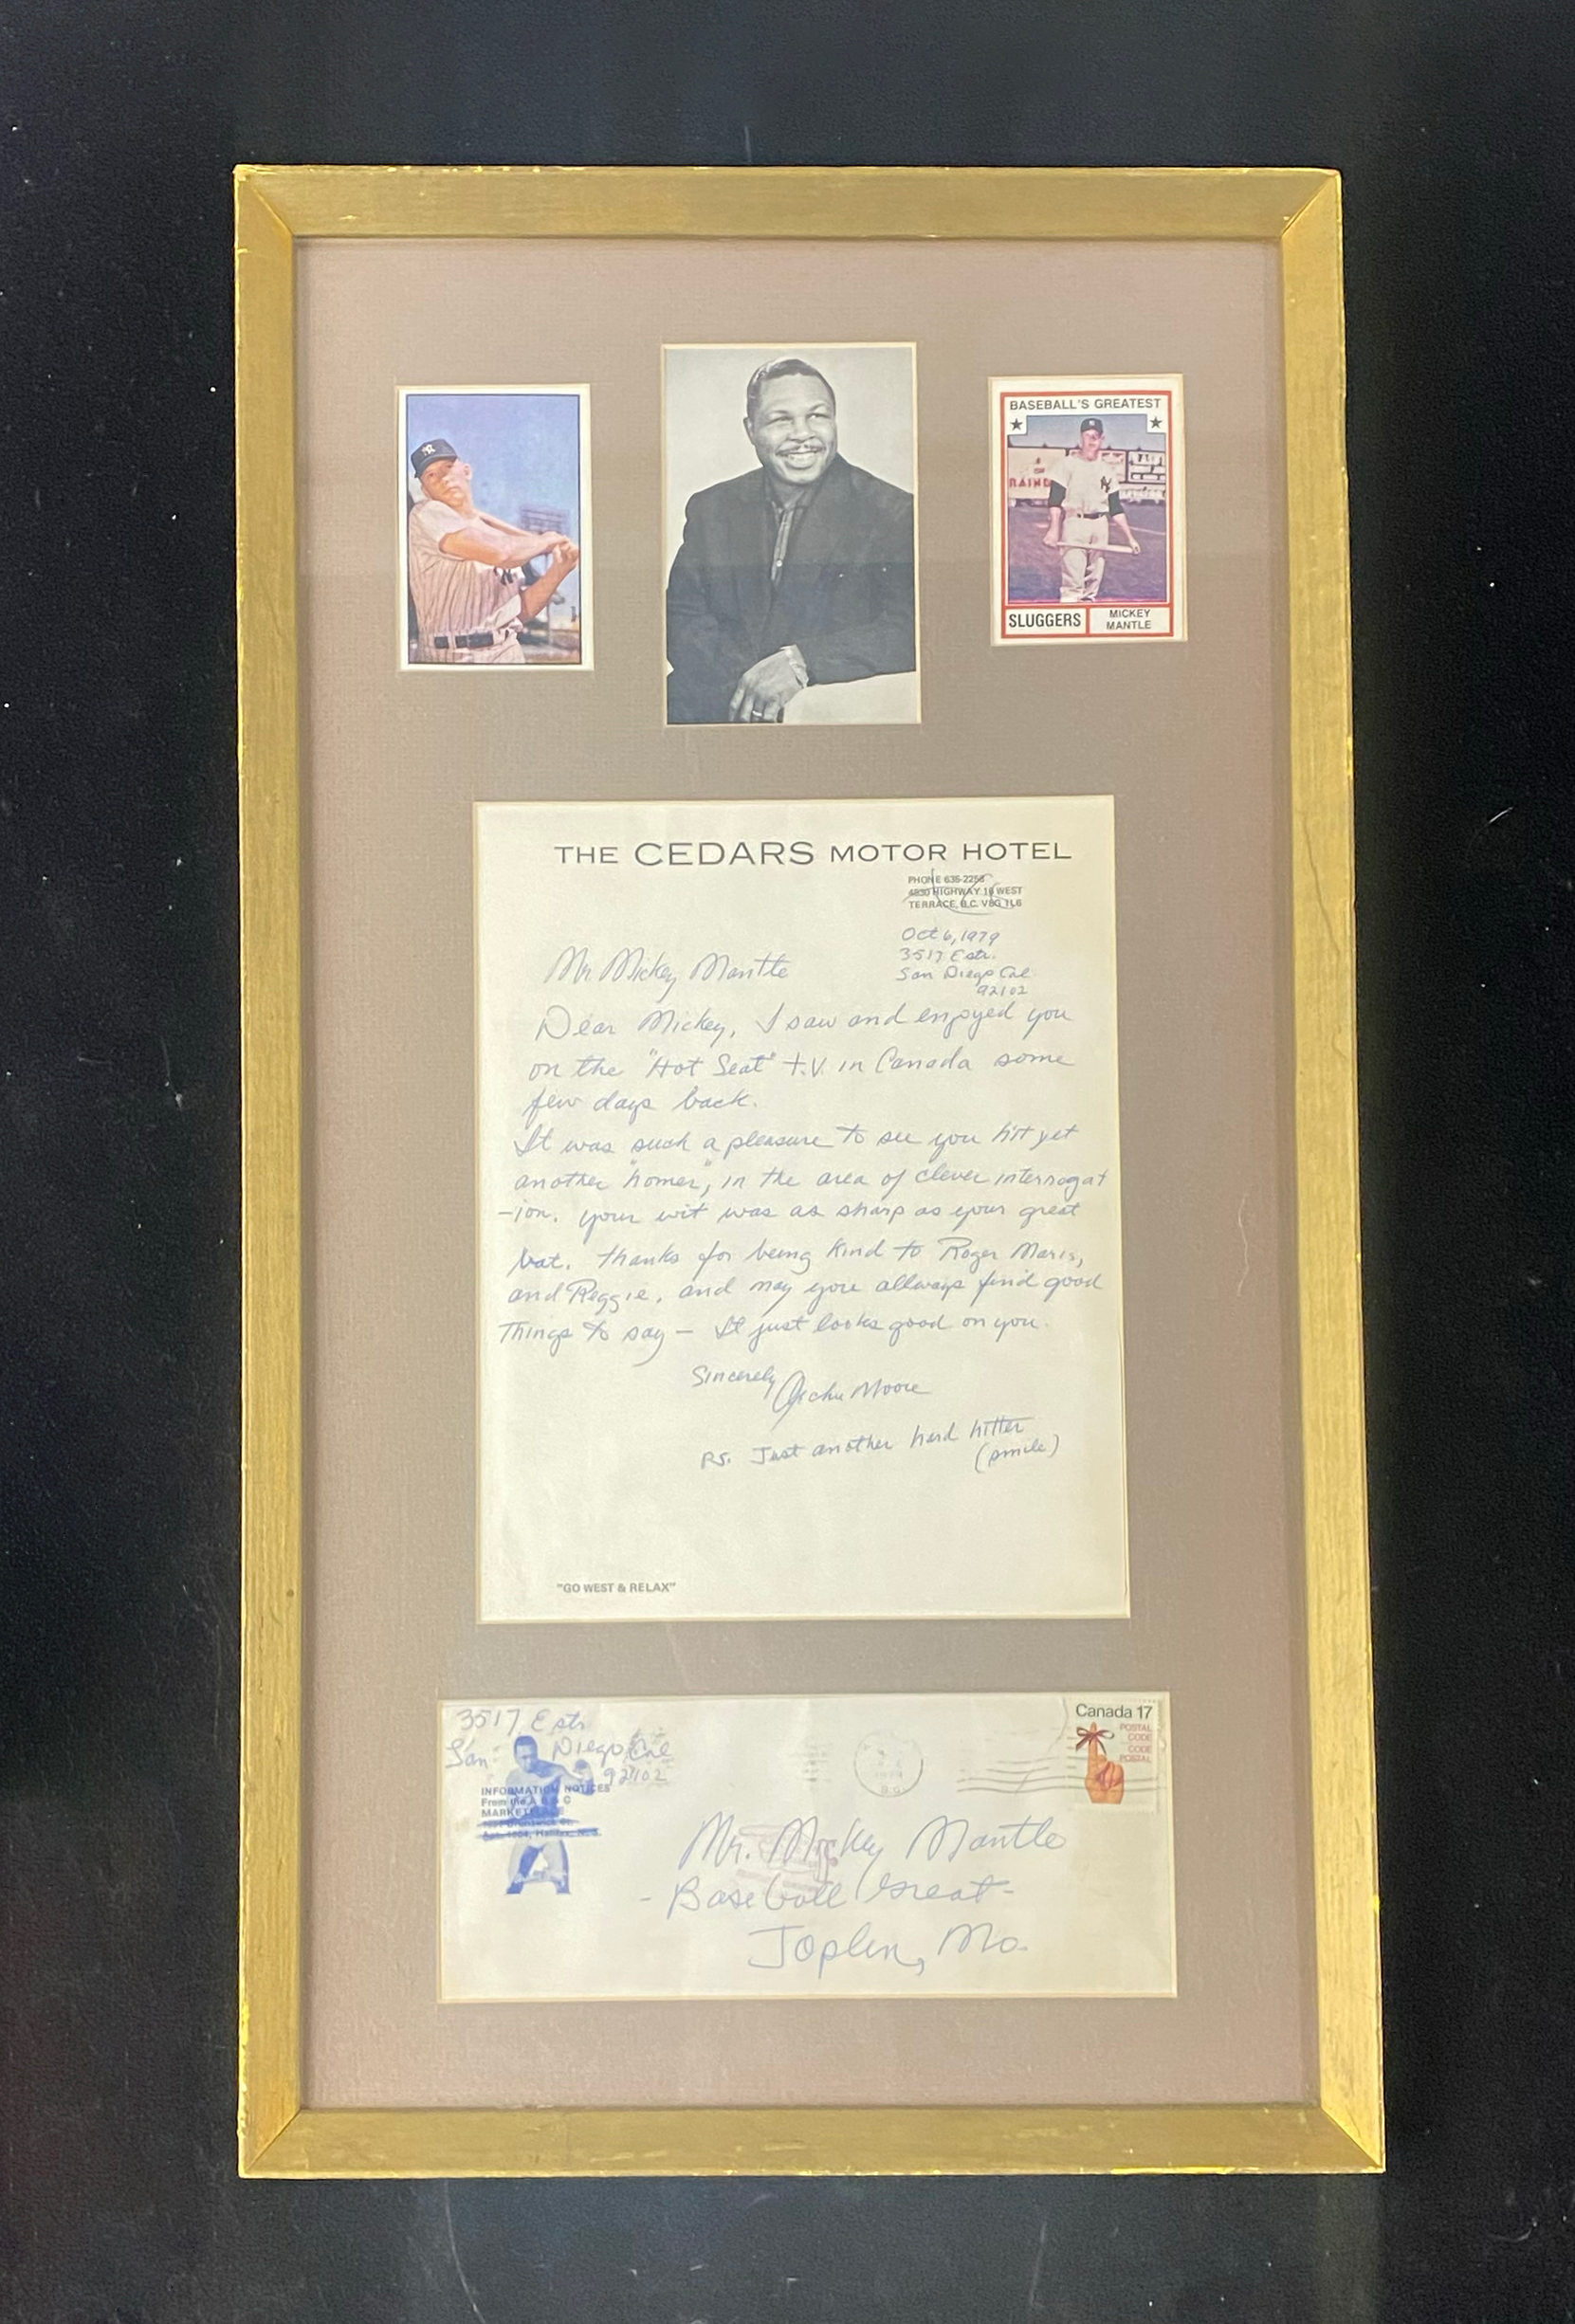 BASEBALL'S GREATEST
SLUGGERS
MICKEY
MANTLE
THE CEDARS MOTOR HOTEL
PHONE 635-2258
4830 HIGHWAY 16 WEST
TERRACE, B.C. V8G 1L6
Oct 6, 1979
3517 E str.
San Diego Cal
92102
Mr. Mickey Mantle
Dear Mickey, I saw and enjoyed you
on the "Hot Seat" t.V. in Canada some
few days back.
It was such a pleasure to see you hit yet
another "homer", in the area of clever interrogat
-ion. your wit was as sharp as your great
bat. thanks for being kind to Roger Maris,
and Reggie. and may you allways find good
things to say — It just looks good on you.
Sincerely Archie Moore
P.S. Just another hard hitter
(smile)
"GO WEST & RELAX"
3517 E str
San Diego Cal
92102
INFORMATION NOTICES
From the A B C
MARKETPLACE
Canada 17
POSTAL
CODE
CODE
POSTAL
Mr. Mickey Mantle
- Baseball Great -
Joplin, Mo.